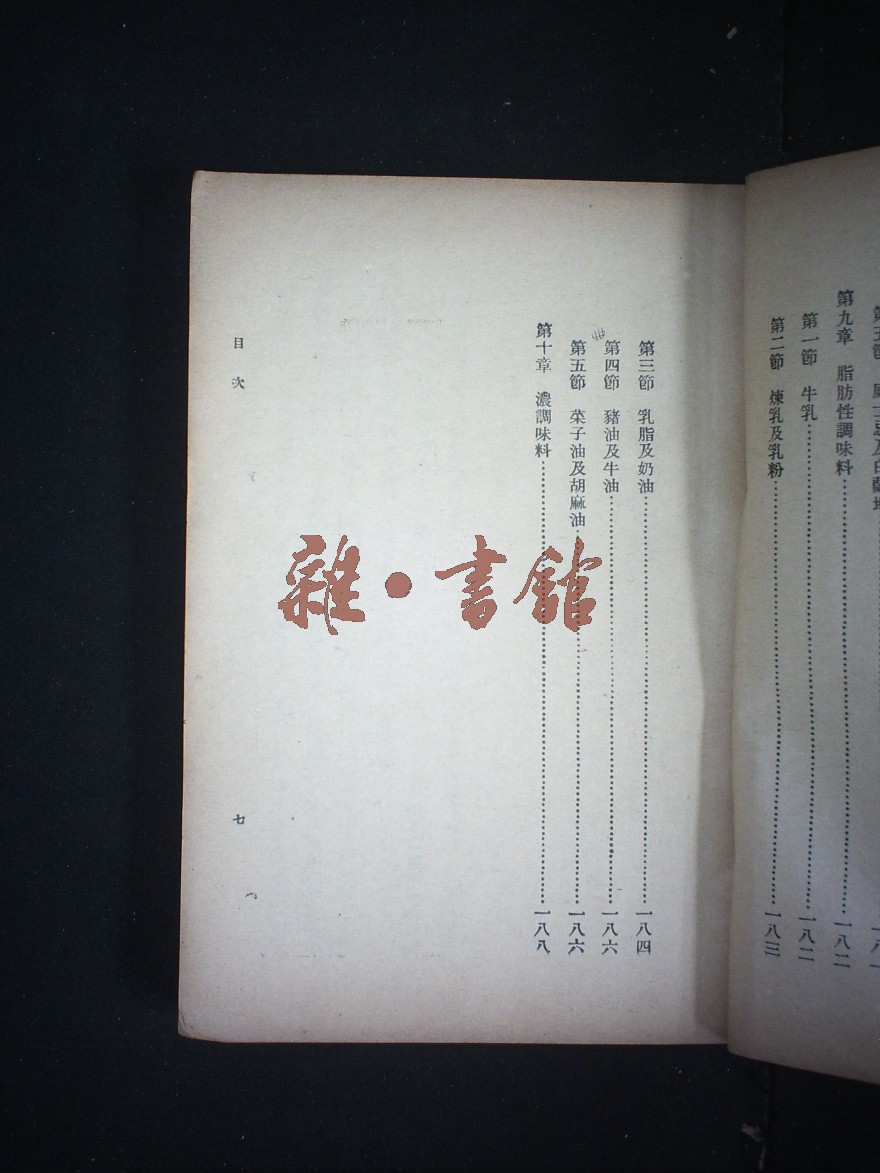 第九章 脂肪性調味料……一八二
第一節 牛乳……一八二
第二節 煉乳及乳粉……一八三
第三節 乳脂及奶油……一八四
第四節 豬油及牛油……一八六
第五節 菜子油及胡麻油……一八六
第十章 濃調味料……一八八
目次
七
雜•書館